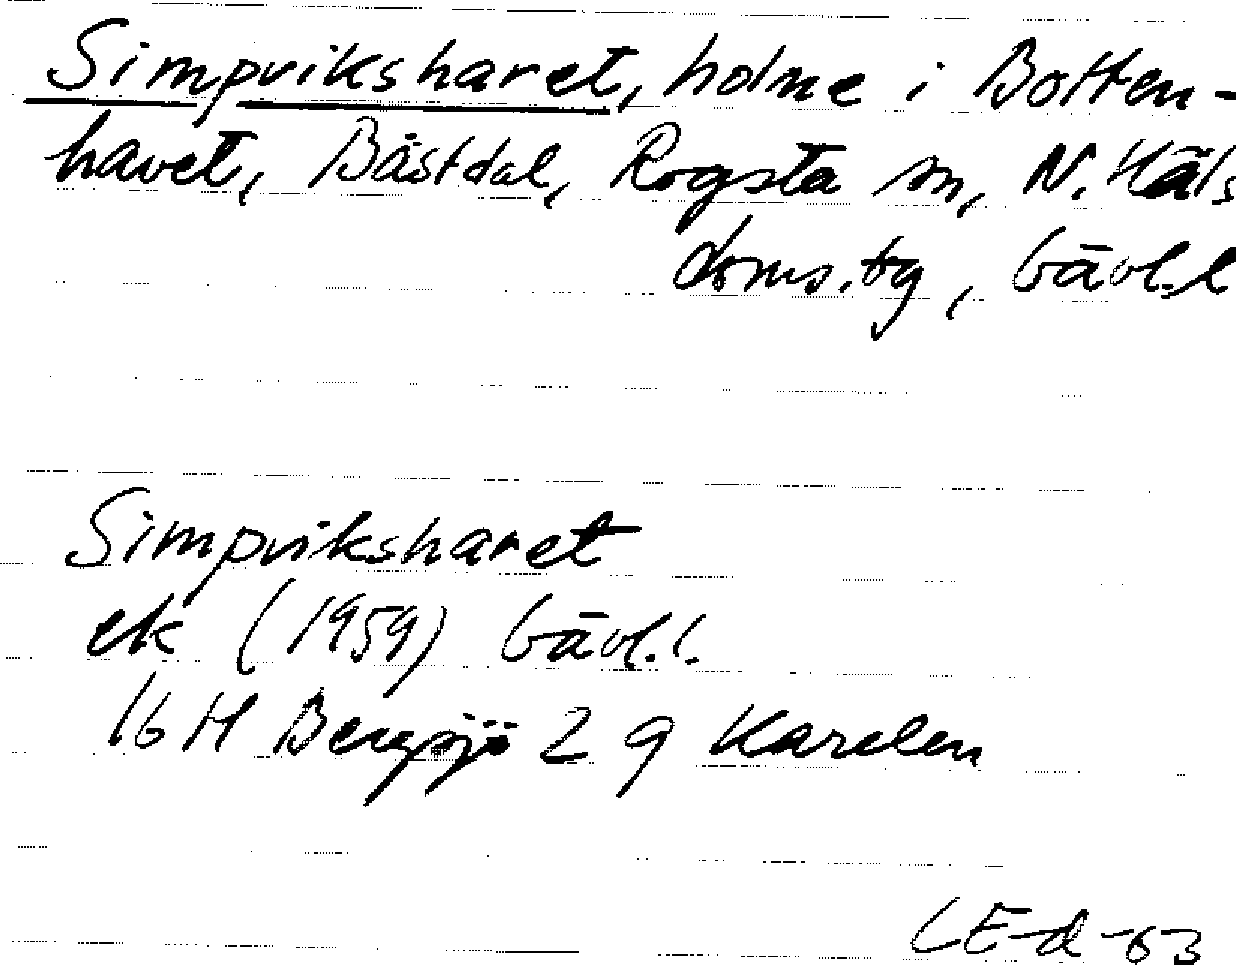 Simpviksharet, holme i Botten-
havet, Båstdal, Rogsta sn, N. Häls
doms.tg, Gävl.l
Simpviksharet
ek (1959) Gävl.l.
16 H Bergsjö 2 g Karelen
LE-d-63